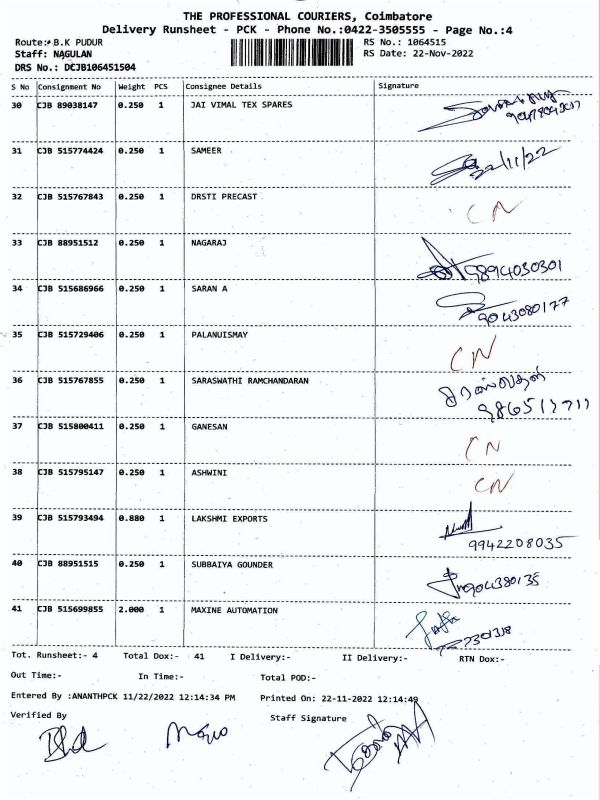 THE PROFESSIONAL COURIERS, Coimbatore
Delivery Runsheet - PCK - Phone No.:0422-3505555 - Page No.:4
Route:- B.K PUDUR RS No.: 1064515
Staff: NAGULAN RS Date: 22-Nov-2022
DRS No.: DCJB106451504
S No Consignment No Weight PCS Consignee Details Signature
30 CJB 89038147 0.250 1 JAI VIMAL TEX SPARES
31 CJB 515774424 0.250 1 SAMEER 22/11/22
32 CJB 515767843 0.250 1 DRSTI PRECAST CN
33 CJB 88951512 0.250 1 NAGARAJ 9894030301
34 CJB 515686966 0.250 1 SARAN A 9043080177
35 CJB 515729406 0.250 1 PALANUISMAY CN
36 CJB 515767855 0.250 1 SARASWATHI RAMCHANDARAN
37 CJB 515800411 0.250 1 GANESAN CN
38 CJB 515795147 0.250 1 ASHWINI CN
39 CJB 515793494 0.880 1 LAKSHMI EXPORTS 9942208035
40 CJB 88951515 0.250 1 SUBBAIYA GOUNDER
41 CJB 515699855 2.000 1 MAXINE AUTOMATION
Tot. Runsheet:- 4 Total Dox:- 41 I Delivery:- II Delivery:- RTN Dox:-
Out Time:- In Time:- Total POD:-
Entered By :ANANTHPCK 11/22/2022 12:14:34 PM Printed On: 22-11-2022 12:14:49
Verified By Staff Signature